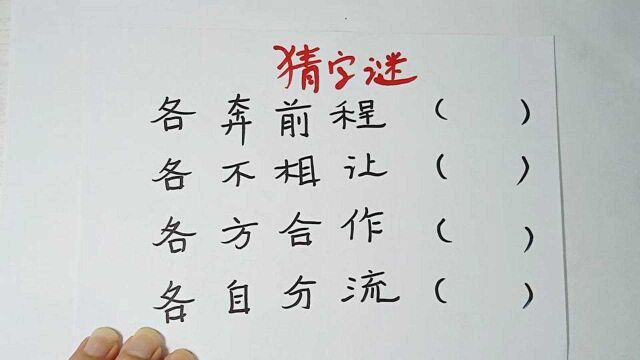 猜字谜
各奔前程（ ）
各不相让（ ）
各方合作（ ）
各自分流（ ）